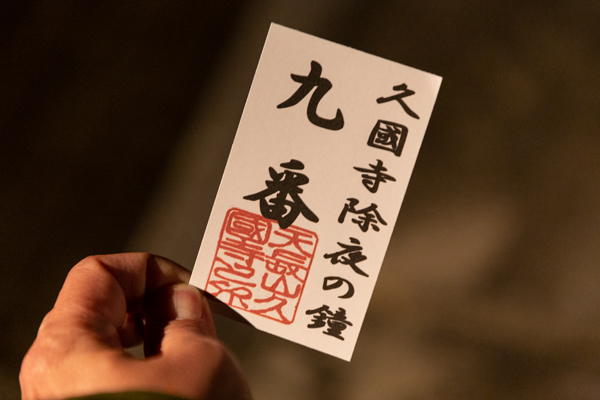 久國寺除夜の鐘
九番
天長山久
國寺之印